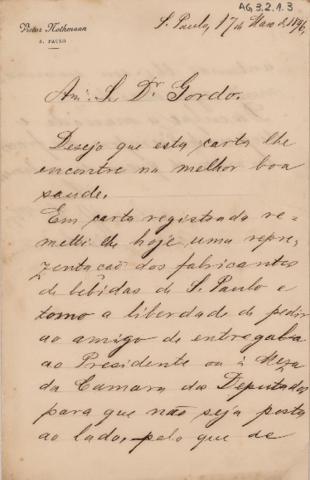 AG.3.2.1.3
Victor Nothmann
S. PAULO
S. Paulo, 17 de Maio de 1896,
Amº. Sr. Dr. Gordo.
Desejo que esta carta lhe
encontre na melhor boa
saude.
Em carta registrada re-
metti lhe hoje uma repre-
zentacaõ dos fabricantes
de bebidas de S. Paulo e
tomo a liberdade de pedir
ao amigo de entregal-a
ao Presidente ou à Meza
da Camara dos Deputados
para que não seja posta
ao lado, pelo que de